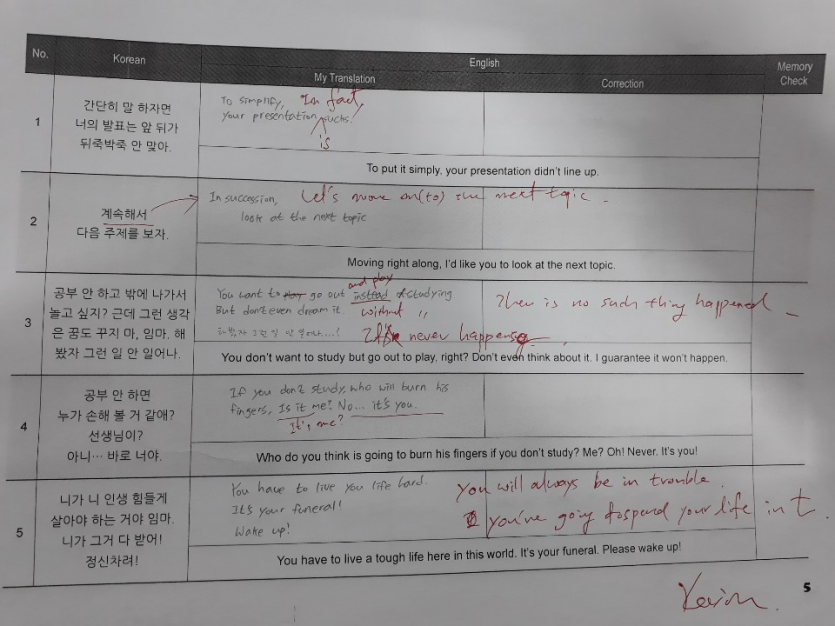 No.
Korean
English
My Translation
Correction
Memory
Check
1
간단히 말 하자면
너의 발표는 앞 뒤가
뒤죽박죽 안 맞아.
To simplify, In fact,
your presentation sucks!
is
To put it simply, your presentation didn't line up.
2
계속해서
다음 주제를 보자.
In succession, Let's move on(to) the next topic.
look at the next topic
Moving right along, I'd like you to look at the next topic.
3
공부 안 하고 밖에 나가서
놀고 싶지? 근데 그런 생각
은 꿈도 꾸지 마, 임마. 해
봤자 그런 일 안 일어나.
and play
You want to play go out instead of studying
But don't even dream it. without "
해봤자 그런 일 안 일어나...!
never happens
There is no such thing happened
You don't want to study but go out to play, right? Don't even think about it. I guarantee it won't happen.
4
공부 안 하면
누가 손해 볼 거 같애?
선생님이?
아니… 바로 너야.
If you don't study, who will burn his
fingers, Is it me? No... it's you.
It's me?
Who do you think is going to burn his fingers if you don't study? Me? Oh! Never. It's you!
5
니가 니 인생 힘들게
살아야 하는 거야 임마.
니가 그거 다 받어!
정신차려!
You have to live you life hard.
It's your funeral!
Wake up!
You will always be in trouble.
you've going to spend your life in t
You have to live a tough life here in this world. It's your funeral. Please wake up!
5